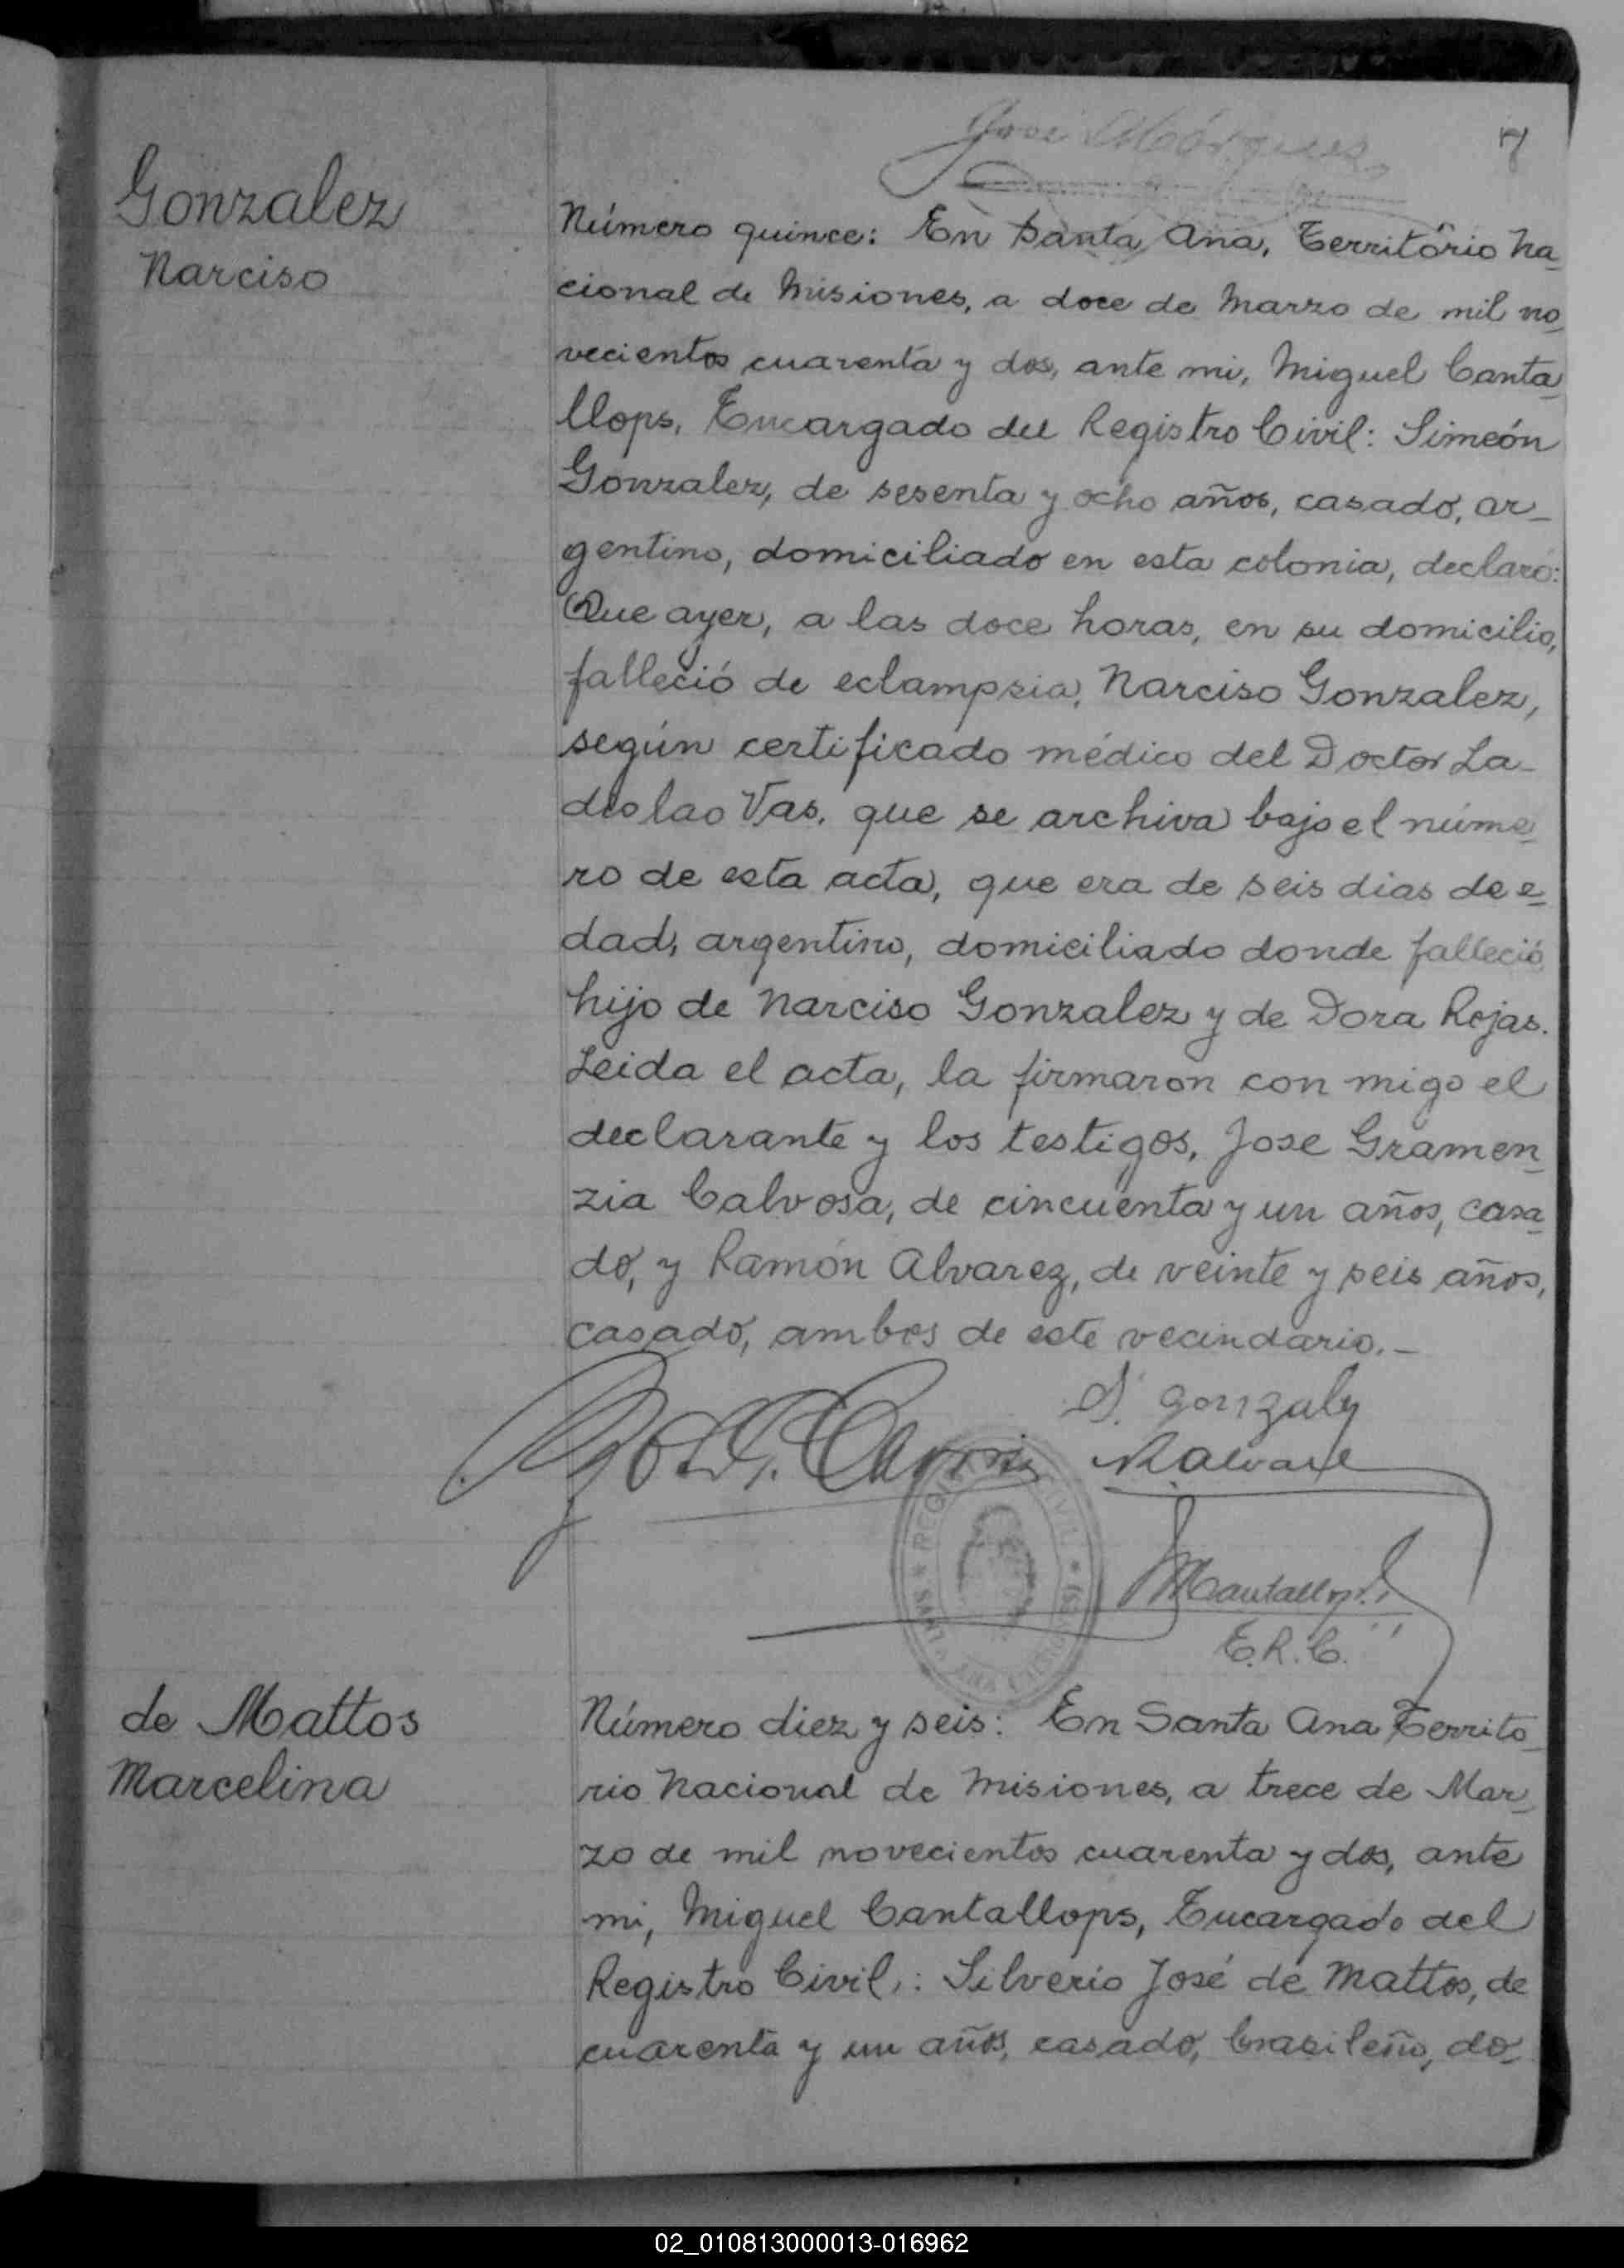 José Márquez
7
Gonzalez
Narciso
Número quince: En Santa Ana, Território Na-
cional de Misiones, a doce de Marzo de mil no-
vecientos cuarenta y dos, ante mi, Miguel Canta-
llops, Encargado del Registro Civil: Simeón
Gonzalez, de sesenta y ocho años, casado, ar-
gentino, domiciliado en esta colonia, declaró:
Que ayer, a las doce horas, en su domicilio,
falleció de eclampsia, Narciso Gonzalez,
según certificado médico del Doctor La-
dislao Vas, que se archiva bajo el núme-
ro de esta acta, que era de seis dias de e-
dad, argentino, domiciliado donde falleció
hijo de Narciso Gonzalez y de Dora Rojas.
Leida el acta, la firmaron con migo el
declarante y los testigos, Jose Gramen-
zia Calvosa, de cincuenta y un años, casa-
do, y Ramón Alvarez, de veinte y seis años,
casado, ambos de este vecindario.-
S. Gonzalez
R Alvarez
REGISTRO CIVIL * SANTA ANA (MISIONES) *
MCantallops
E.R.C.
de Mattos
Marcelina
Número diez y seis: En Santa Ana Territo-
rio Nacional de Misiones, a trece de Mar-
zo de mil novecientos cuarenta y dos, ante
mi, Miguel Cantallops, Encargado del
Registro Civil,: Silverio José de Mattos, de
cuarenta y un años, casado, brasileño, do-
02_010813000013-016962